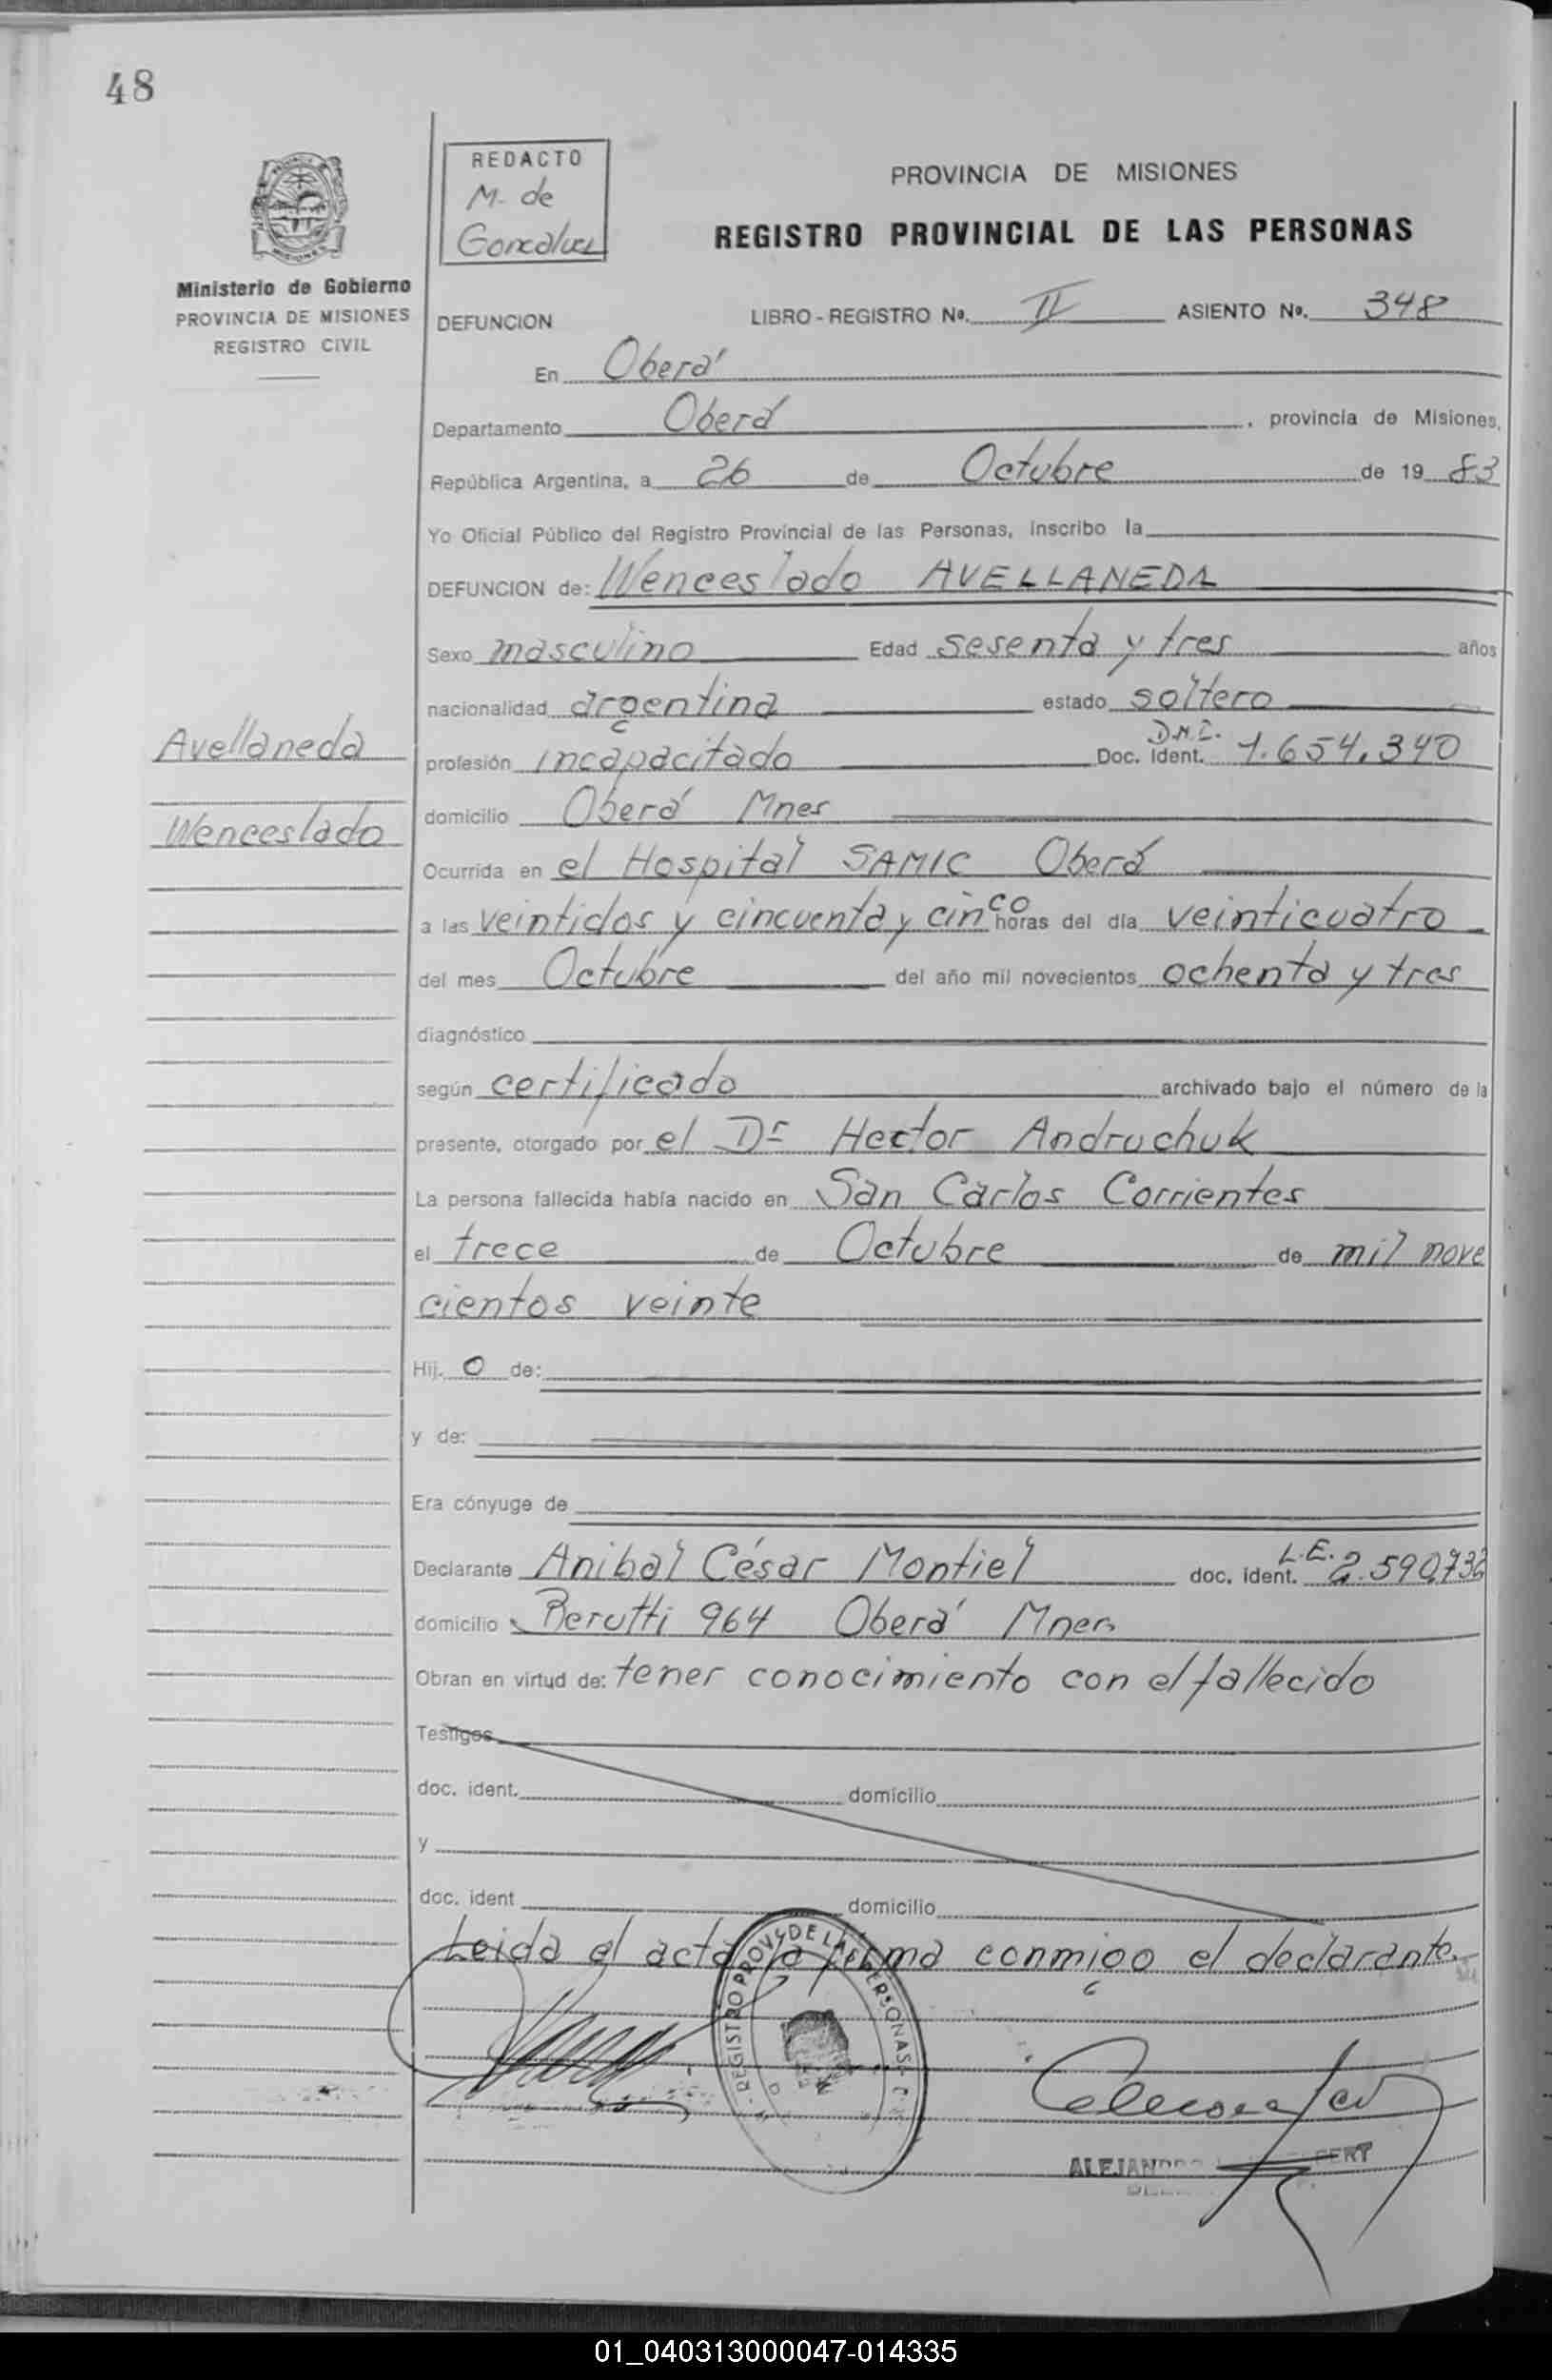 48
REDACTO
M. de
Goncalves
Ministerio de Gobierno
PROVINCIA DE MISIONES
REGISTRO CIVIL
PROVINCIA DE MISIONES
REGISTRO PROVINCIAL DE LAS PERSONAS
DEFUNCION LIBRO - REGISTRO Nº. II ASIENTO Nº. 348
En Oberá
Departamento Oberá , provincia de Misiones,
República Argentina, a 26 de Octubre de 19 83
Yo Oficial Público del Registro Provincial de las Personas, inscribo la
DEFUNCION de: Wenceslado AVELLANEDA
Sexo masculino Edad sesenta y tres años
nacionalidad argentina estado soltero
Avellaneda
Wenceslado
profesión incapacitado Doc. Ident. D.N.I. 1.654.340
domicilio Oberá Mnes
Ocurrida en el Hospital SAMIC Oberá
a las veintidos y cincuenta y cinco horas del día veinticuatro
del mes Octubre del año mil novecientos ochenta y tres
diagnóstico
según certificado archivado bajo el número de la
presente, otorgado por el Dr Hector Andruchuk
La persona fallecida había nacido en San Carlos Corrientes
el trece de Octubre de mil nove
cientos veinte
Hij. o de:
y de:
Era cónyuge de
Declarante Anibal César Montiel doc. ident. L.E. 2.590.736
domicilio Berutti 964 Oberá Mnes
Obran en virtud de: tener conocimiento con el fallecido
Testigos
doc. ident. domicilio
y
doc. ident domicilio
Leida el acta la firma conmigo el declarante.
REGISTRO PROV. DE LAS PERSONAS
01_040313000047-014335